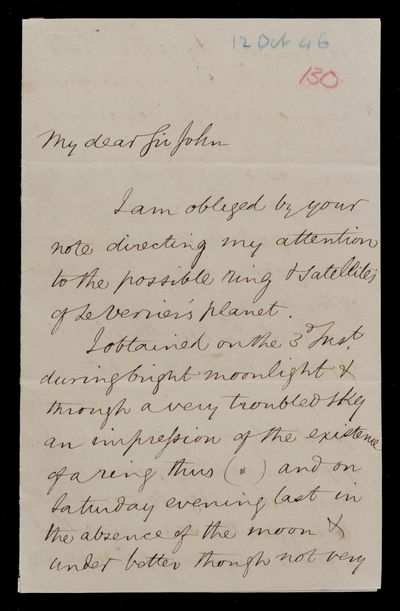 12 Oct 46
130
My dear Sir John
I am obliged by your
note directing my attention
to the possible ring & satellites
of Le Verrier's planet.
I obtained on the 3d Inst.
during bright moonlight &
through a very troubled sky
an impression of the existence
of a ring thus ( ) and on
Saturday evening last in
the absence of the moon &
under better though not very